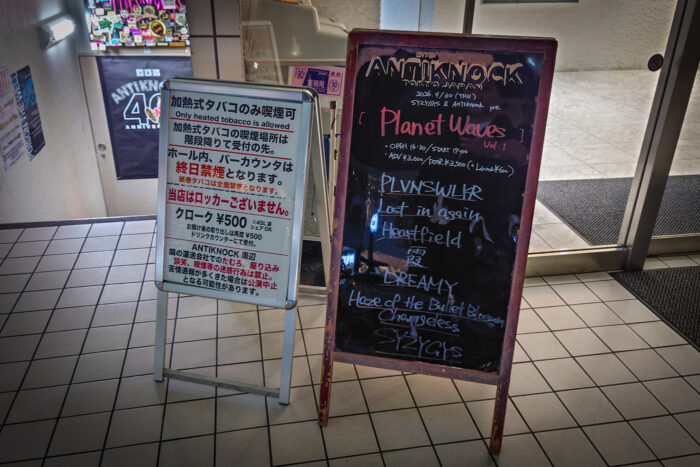 ANTIKNOCK
40
加熱式タバコのみ喫煙可
Only heated tobacco is allowed
加熱式タバコの喫煙場所は
階段降りて受付の先。
ホール内、バーカウンタは
終日禁煙となります。
紙巻タバコは全面禁煙となります。
当店はロッカーございません。
クローク ¥500 ※45L袋 シェアOK
お預け後の取り出しは再度 ¥500
ドリンクカウンターにて受付。
ANTIKNOCK 周辺
隣の運送会社でのたむろ、座り込み
談笑、喫煙等の迷惑行為は禁止。
苦情通報が多くきた場合は公演中止
となる可能性があります。
ANTIKNOCK
TOKYO JAPAN
2026. 4/30 (THU)
SYZYGYS & ANTIKNOCK pre.
[ Planet Waves ]
Vol. 1
・OPEN 16:30 / START 17:00
・ADV ¥3,000 / DOOR ¥3,500 (+1drink ¥600)
PLVNSWLKR
Lost in again
Heartfield
霞
DREAMY
Haze of the Bullet Blossom
Changeless
SYZYGYS